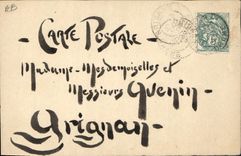 - CARTE POSTALE -
Madame - Mesdemoiselles et
Messieurs Guenin -
Grignan -